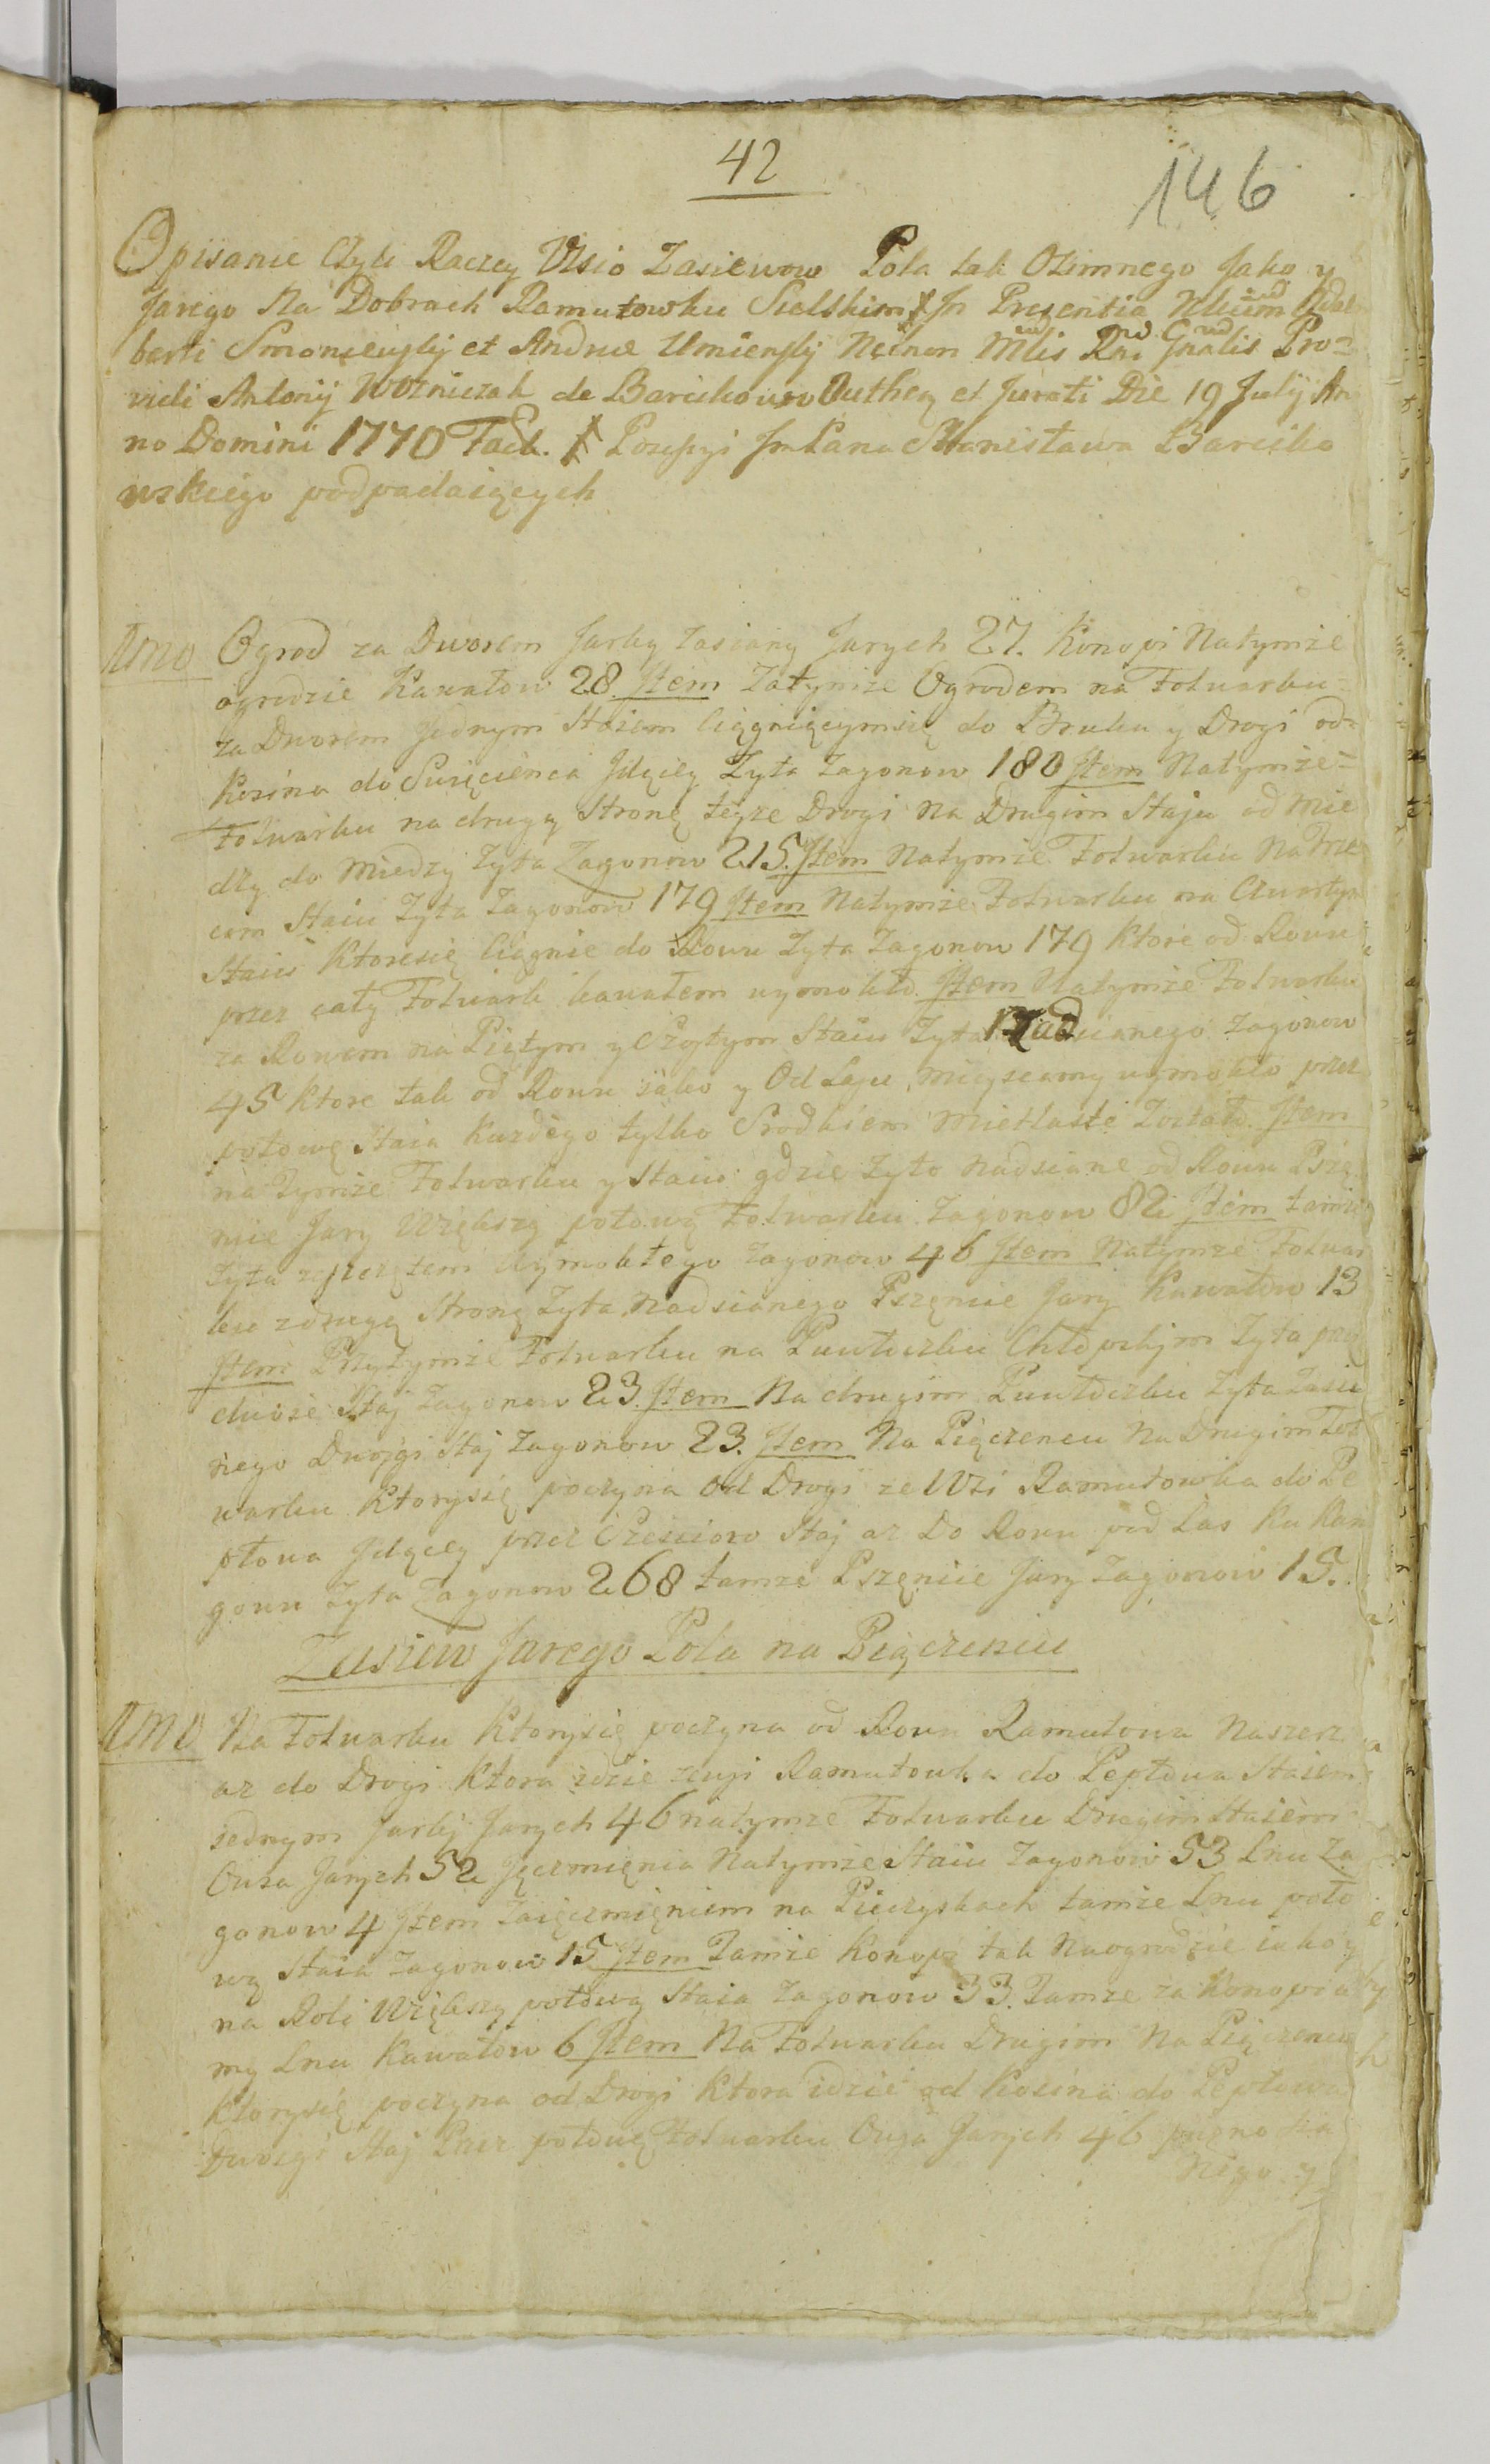 42
146
Opisanie Czyli Raczey Visio Zasiewow Pola tak Ozimnego Jako y
Jarego Na Dobrach Ramutowku Sielskim ⚹ In Presentia Nblium Adal
berti et Andrea Necnon Mlis Rni Gnalis Pro=
vidi Antonij Wozniczak de Barcikowo Authen et Jurati Die 19 July An
no Domini 1770 Fact. ⚹ Possessyi Jm Pana Stanisława Barciko
wskiego podpadaiących
Imo Ogrod za Dworem Jarką zasiany Jarych 27. Konopi Natymże
ogrodzie Kawałow 28. Item Zatymże Ogrodem na Folwarku=
za Dworem Jednym Stajem Ciągniącymsię do Bruku y Drogi od=
Kosina do Święcienca Jdącey Zyta Zagonow 180 Item Natymże=
Folwarku na drugą Stronę teyze Drogi Na Drugim Staju od Mie
dzy do Miedzy Zyta Zagonow 215. Item Natymże Folwarku Na Trze
cim Staiu Zyta Zagonow 179 Item Natymże Folwarku na Czwartym
Staiu Ktoresię Ciągnie do Rowu Zyta Zagonow 179 Ktore od Rowu
przez cały Folwark kawałem wymokło. Item Natymże Folwarku
za Rowem na Piątym y Szostym Staiu Zyta Nadsianego Zagonow
45 Ktore tak od Rowu iako y Od Ługu mieyscamy wymokło przez
połowę Staia Kazdego tylko Srodkiem Zostało. Item
na Tymże Folwarku y Staiu gdzie Zyto Nadsiane od Rowu Psze
nice Jary Większą połową Folwarku Zagonow 82 Item tamże
Zyta Wymokłego Zagonow 46 Item Natymże Folwar
ku zdrugą Stronę Zyta Nadsianego Pszęnice Jary Kawałow 13
Item Przytymże Folwarku na Chłopskim Zyta przez
dwoie Staj Zagonow 23. Item Na drugim Zyta Zasia
nego Dwojgi Staj Zagonow 23. Item Na Pięczeneu Na Drugim Fol
warku Ktorysię poczyna od Drogi ze Wsi Ramutowka do Pe
płowa Jdącey przez Sześcioro Staj az Do Rowu pod Las Ku
gowu Zyta Zagonow 268 tamże Pszęnice Jary Zagonow 15.
Zasiew Jarego Pola na Pięczeniu
Imo Na Folwarku Ktorysię poczyna od Rowu Ramutowa
az do Drogi Ktora idzie zewsi Ramutowka do Pepłowa Staiem
iednym Jarki Jarych 46 natymże Folwarku Drugim Staiem
Owsa Jarych 52 Jęczmięnia Natymże Staiu Zagonow 53 Lnu Za
gonow 4 Item Zaięczmięniem na tamże Lnu poło
wą Staia Zagonow 15 Item Tamże Konopi tak Naogrodzie iako y
na Roli Większą połową Staia Zagonow 33. Tamze za Konopia
my Lnu Kawałow 6 Item Na Folwarku Drugim Na Pięczeneu
Ktorysię poczyna od Drogi Ktora idzie od Kosina do Pepłowa
Dwoigi Staj Przez połowę Folwarku Owsa Jarych 46
Nego y